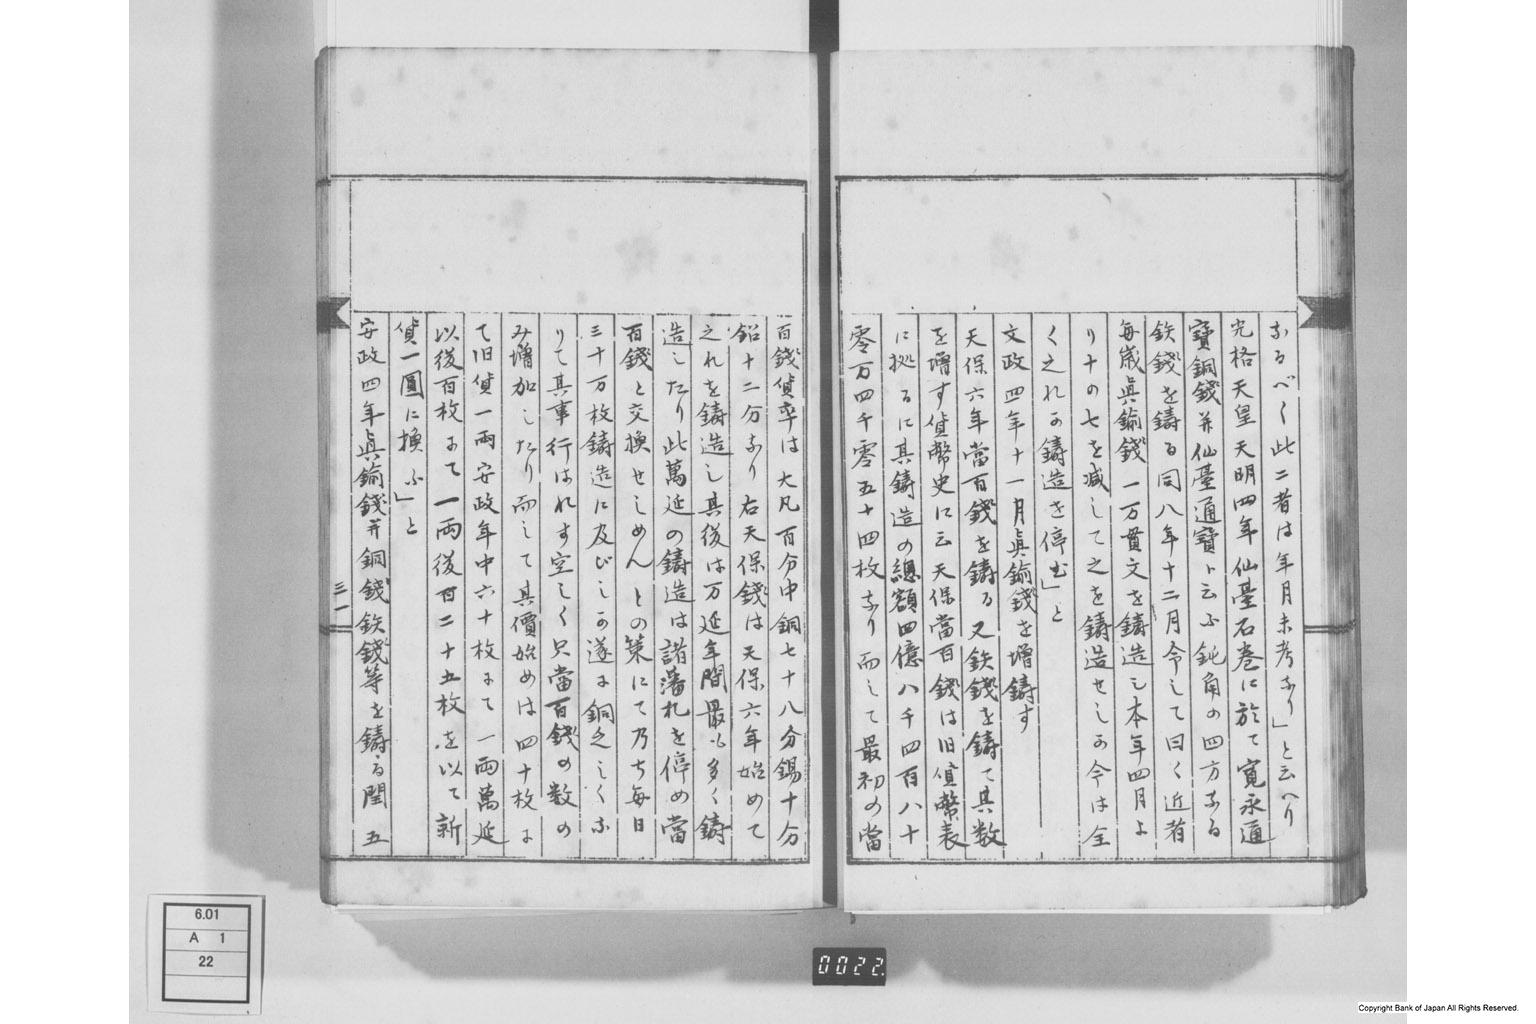 なるべく此二者は年月未考なり」と云へり
光格天皇天明四年仙臺石巻に於て寛永通
寶銅錢并仙臺通寶ト云ふ鈍角の四方なる
鉄錢を鋳る同八年十二月令して曰く近者
毎歳眞鍮錢一万貫文を鋳造し本年四月よ
り十の七を減して之を鋳造せしめ今は全
く之れが鋳造を停む」と
文政四年十一月眞鍮錢を増鋳す
天保六年當百錢を鋳る又鉄錢を鋳て其数
を増す貨幣史に云天保當百錢は旧貨幣表
に拠るに其鋳造の總額四億八千四百八十
零万四千零五十四枚なり而して最初の當
百錢貨率は大凡百分中銅七十八分錫十分
鉛十二分なり右天保錢は天保六年始めて
之れを鋳造し其後は万延年間最も多く鋳
造したり此萬延の鋳造は諸藩札を停め當
百錢と交換せしめんとの策にて乃ち毎日
三十万枚鋳造に及びしが遂に銅乏しくな
りて其事行はれす空しく只當百錢の数の
み増加したり而して其價始めは四十枚に
て旧貨一両安政年中六十枚にて一両萬延
以後百枚にて一両後百二十五枚を以て新
貨一圓に換ふ」と
安政四年眞鍮錢并銅錢鉄錢等を鋳る閏五
三一
6.01
A 1
22
0022.
Copyright Bank of Japan All Rights Reserved.